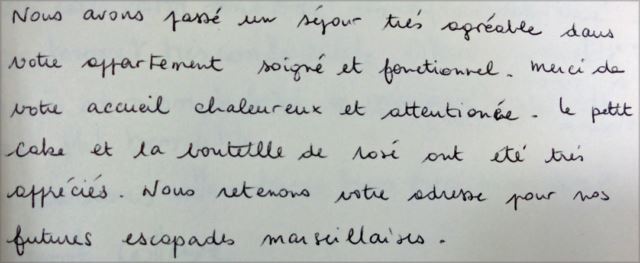 Nous avons passé un séjour très agréable dans
votre appartement soigné et fonctionnel. Merci de
votre accueil chaleureux et attentionée. Le petit
cake et la bouteille de rosé ont été très
appréciés. Nous retenons votre adresse pour nos
futures escapades marseillaises.